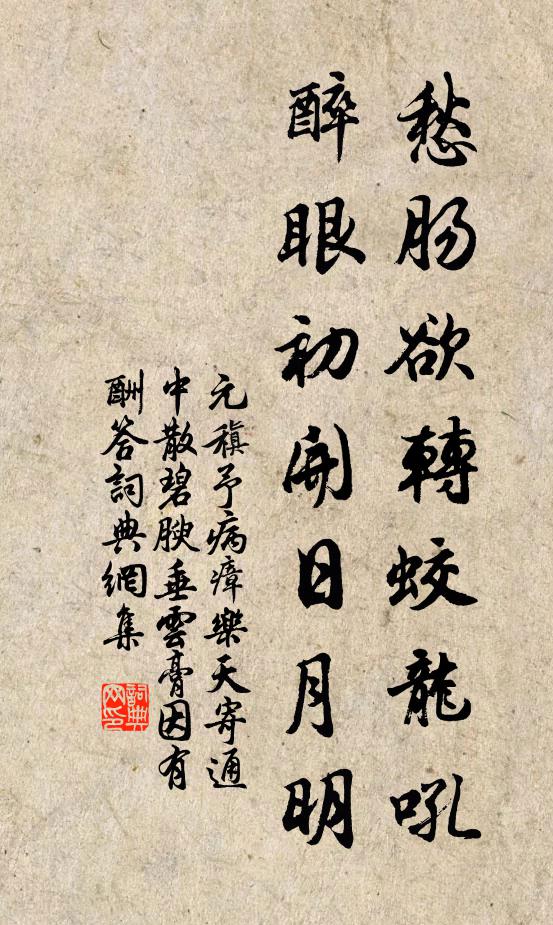 愁肠欲轉蛟龍吼
醉眼初開日月明
元稹予病瘴樂天寄通
中散碧腴垂雲膏因有
酬答詞典網集
詞典网印